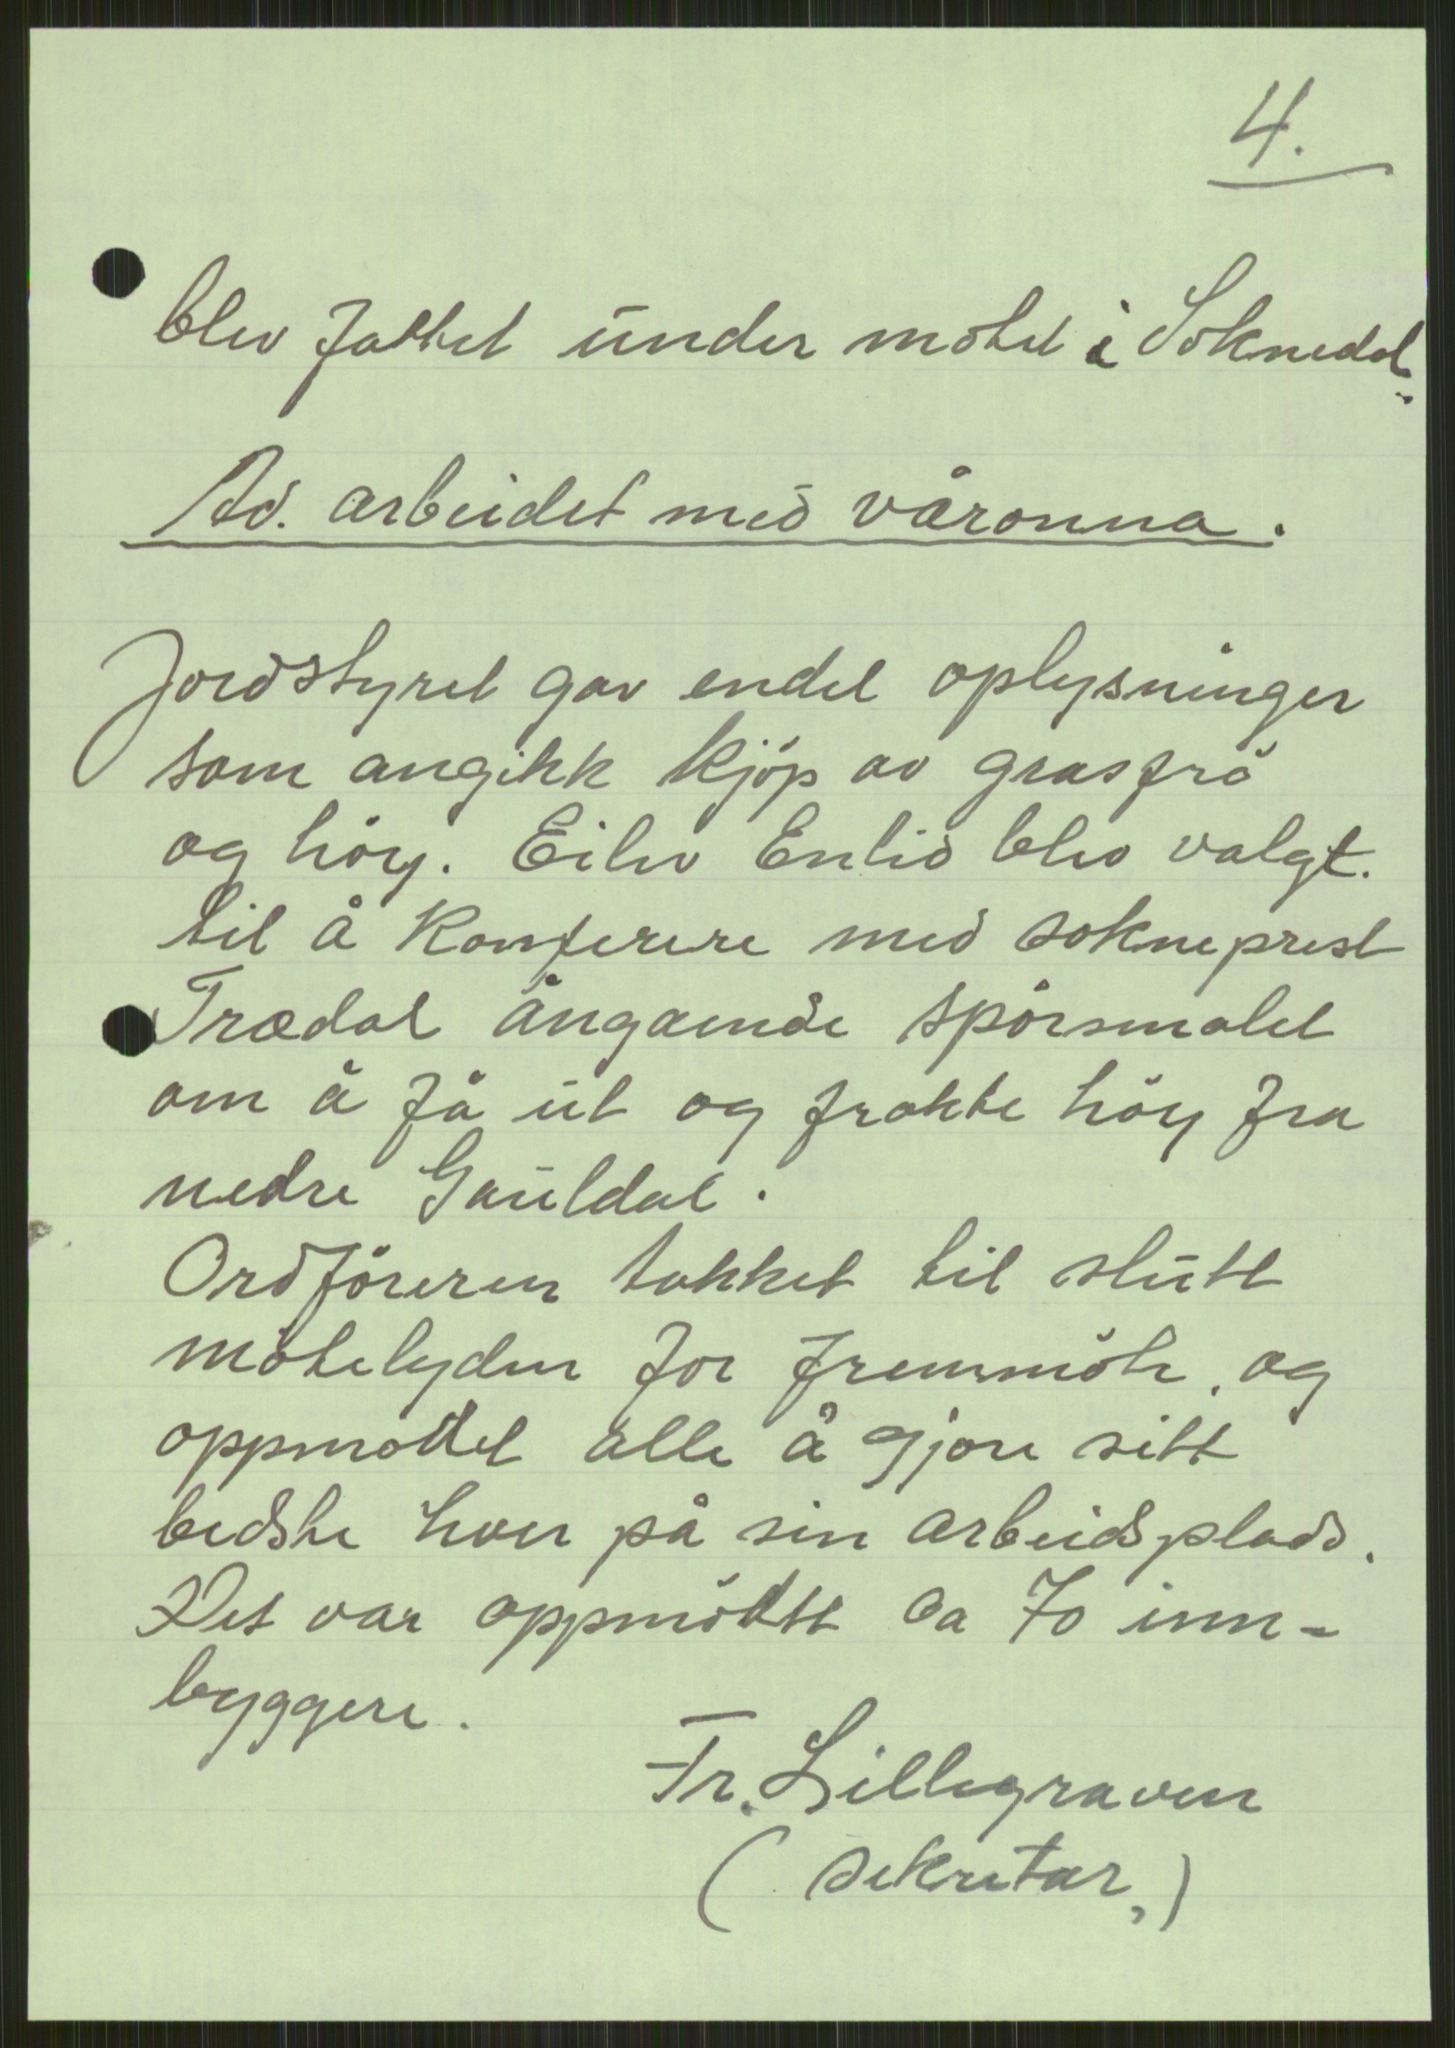 4.
blev fattet under møtet i Soknedal.
Ad. arbeidet med våronna.
Jordstyret gav endel oplysninger
som angikk kjöp av grasfrö
og höy. Eiliv Enlid blev valgt.
til å konferere med sokneprest
Trædal ångaende spörsmalet
om å få ut og frakte höy fra
nedre Gauldal.
Ordföreren takket til slutt
mötelyden for fremmöte, og
oppmodet alle å gjøre sitt
bedste hver på sin arbeidsplads.
Det var oppmöttt ca 70 inn-
byggere.
Fr. Lillegraven
(sekretær,)